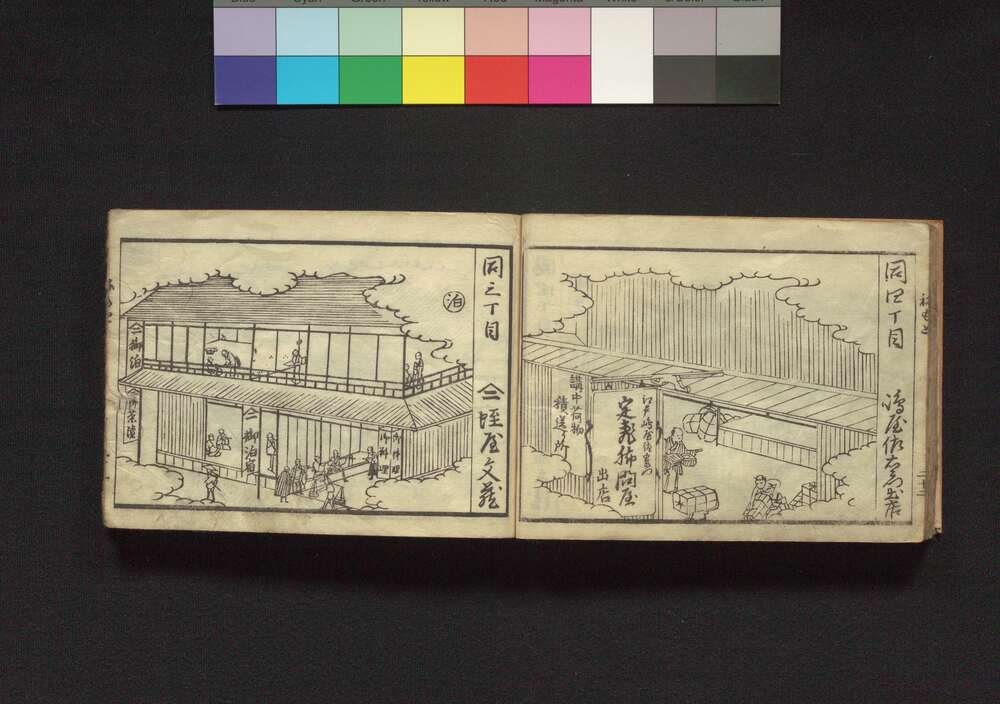 同四丁目
嶋屋佐右衛門出店
江戸嶋屋佐右衛門
定飛脚問屋
出店
講中荷物
積送り所
同三丁目
蛭屋文蔵
泊
御泊
御茶漬
御泊宿
御料理
御料理